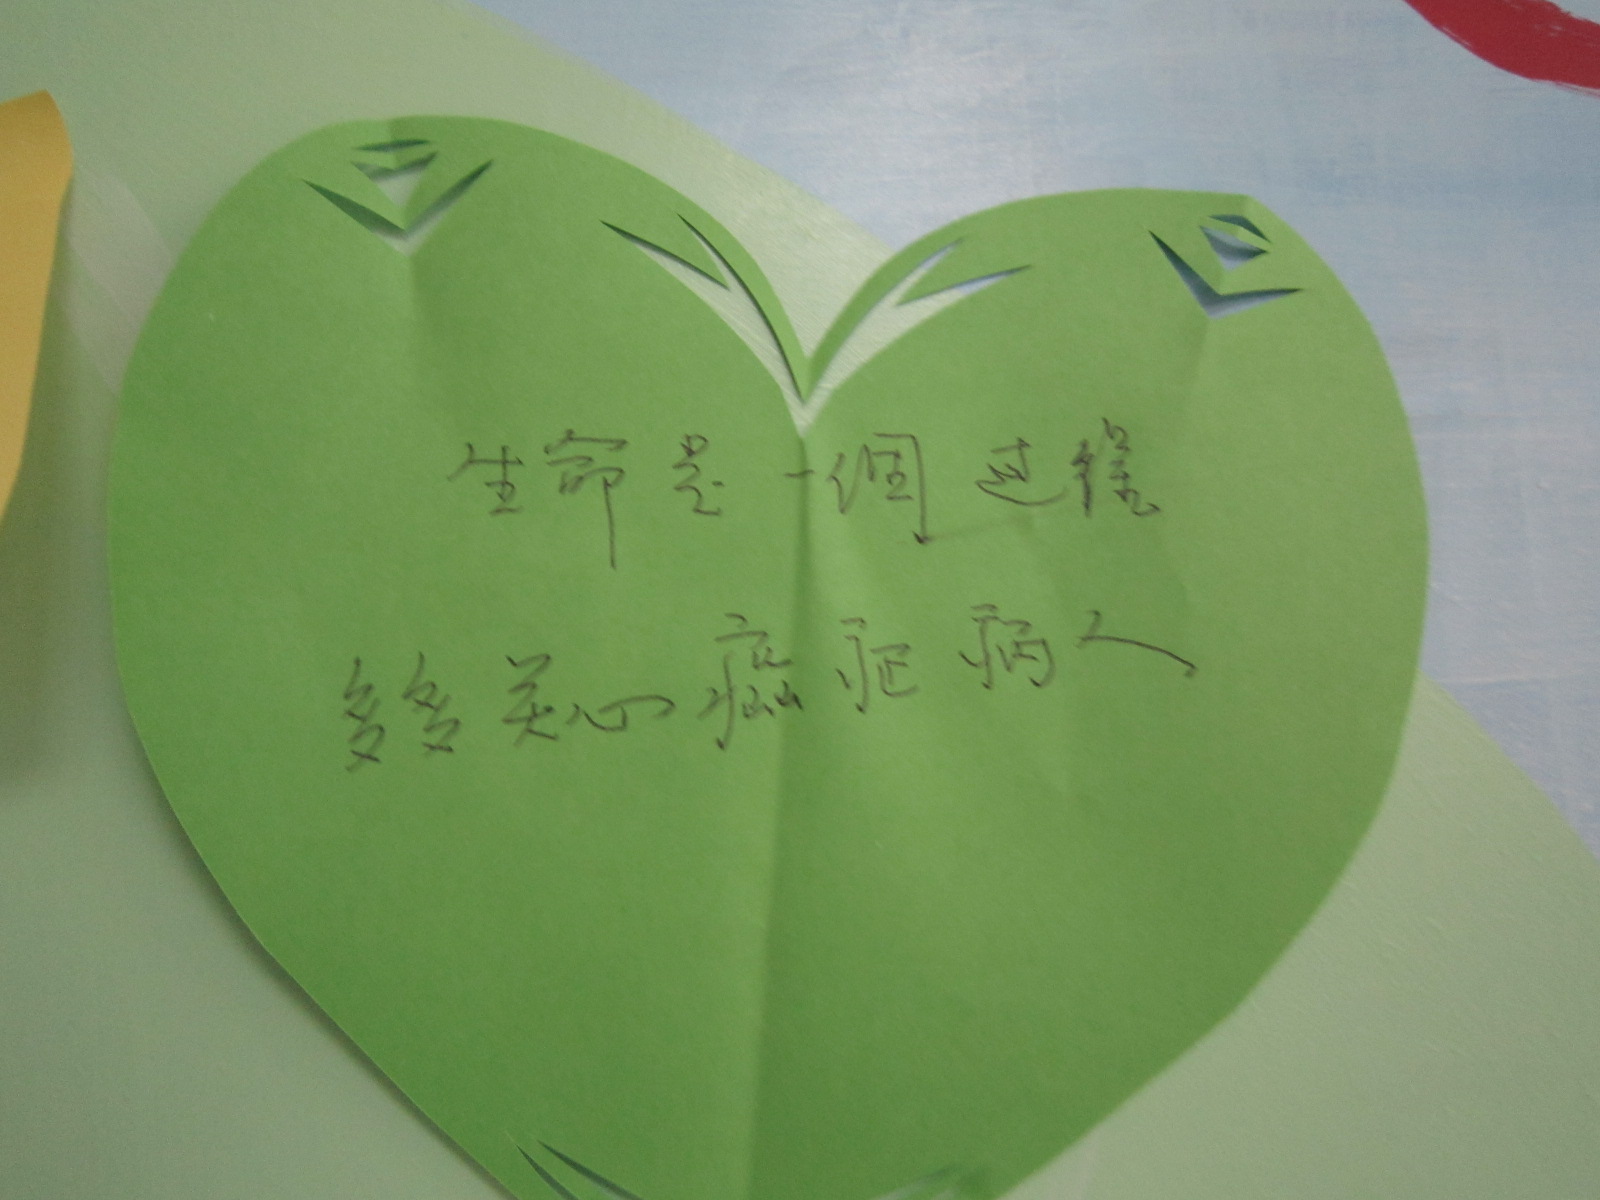 生命是一個过程
多多关心癌症病人